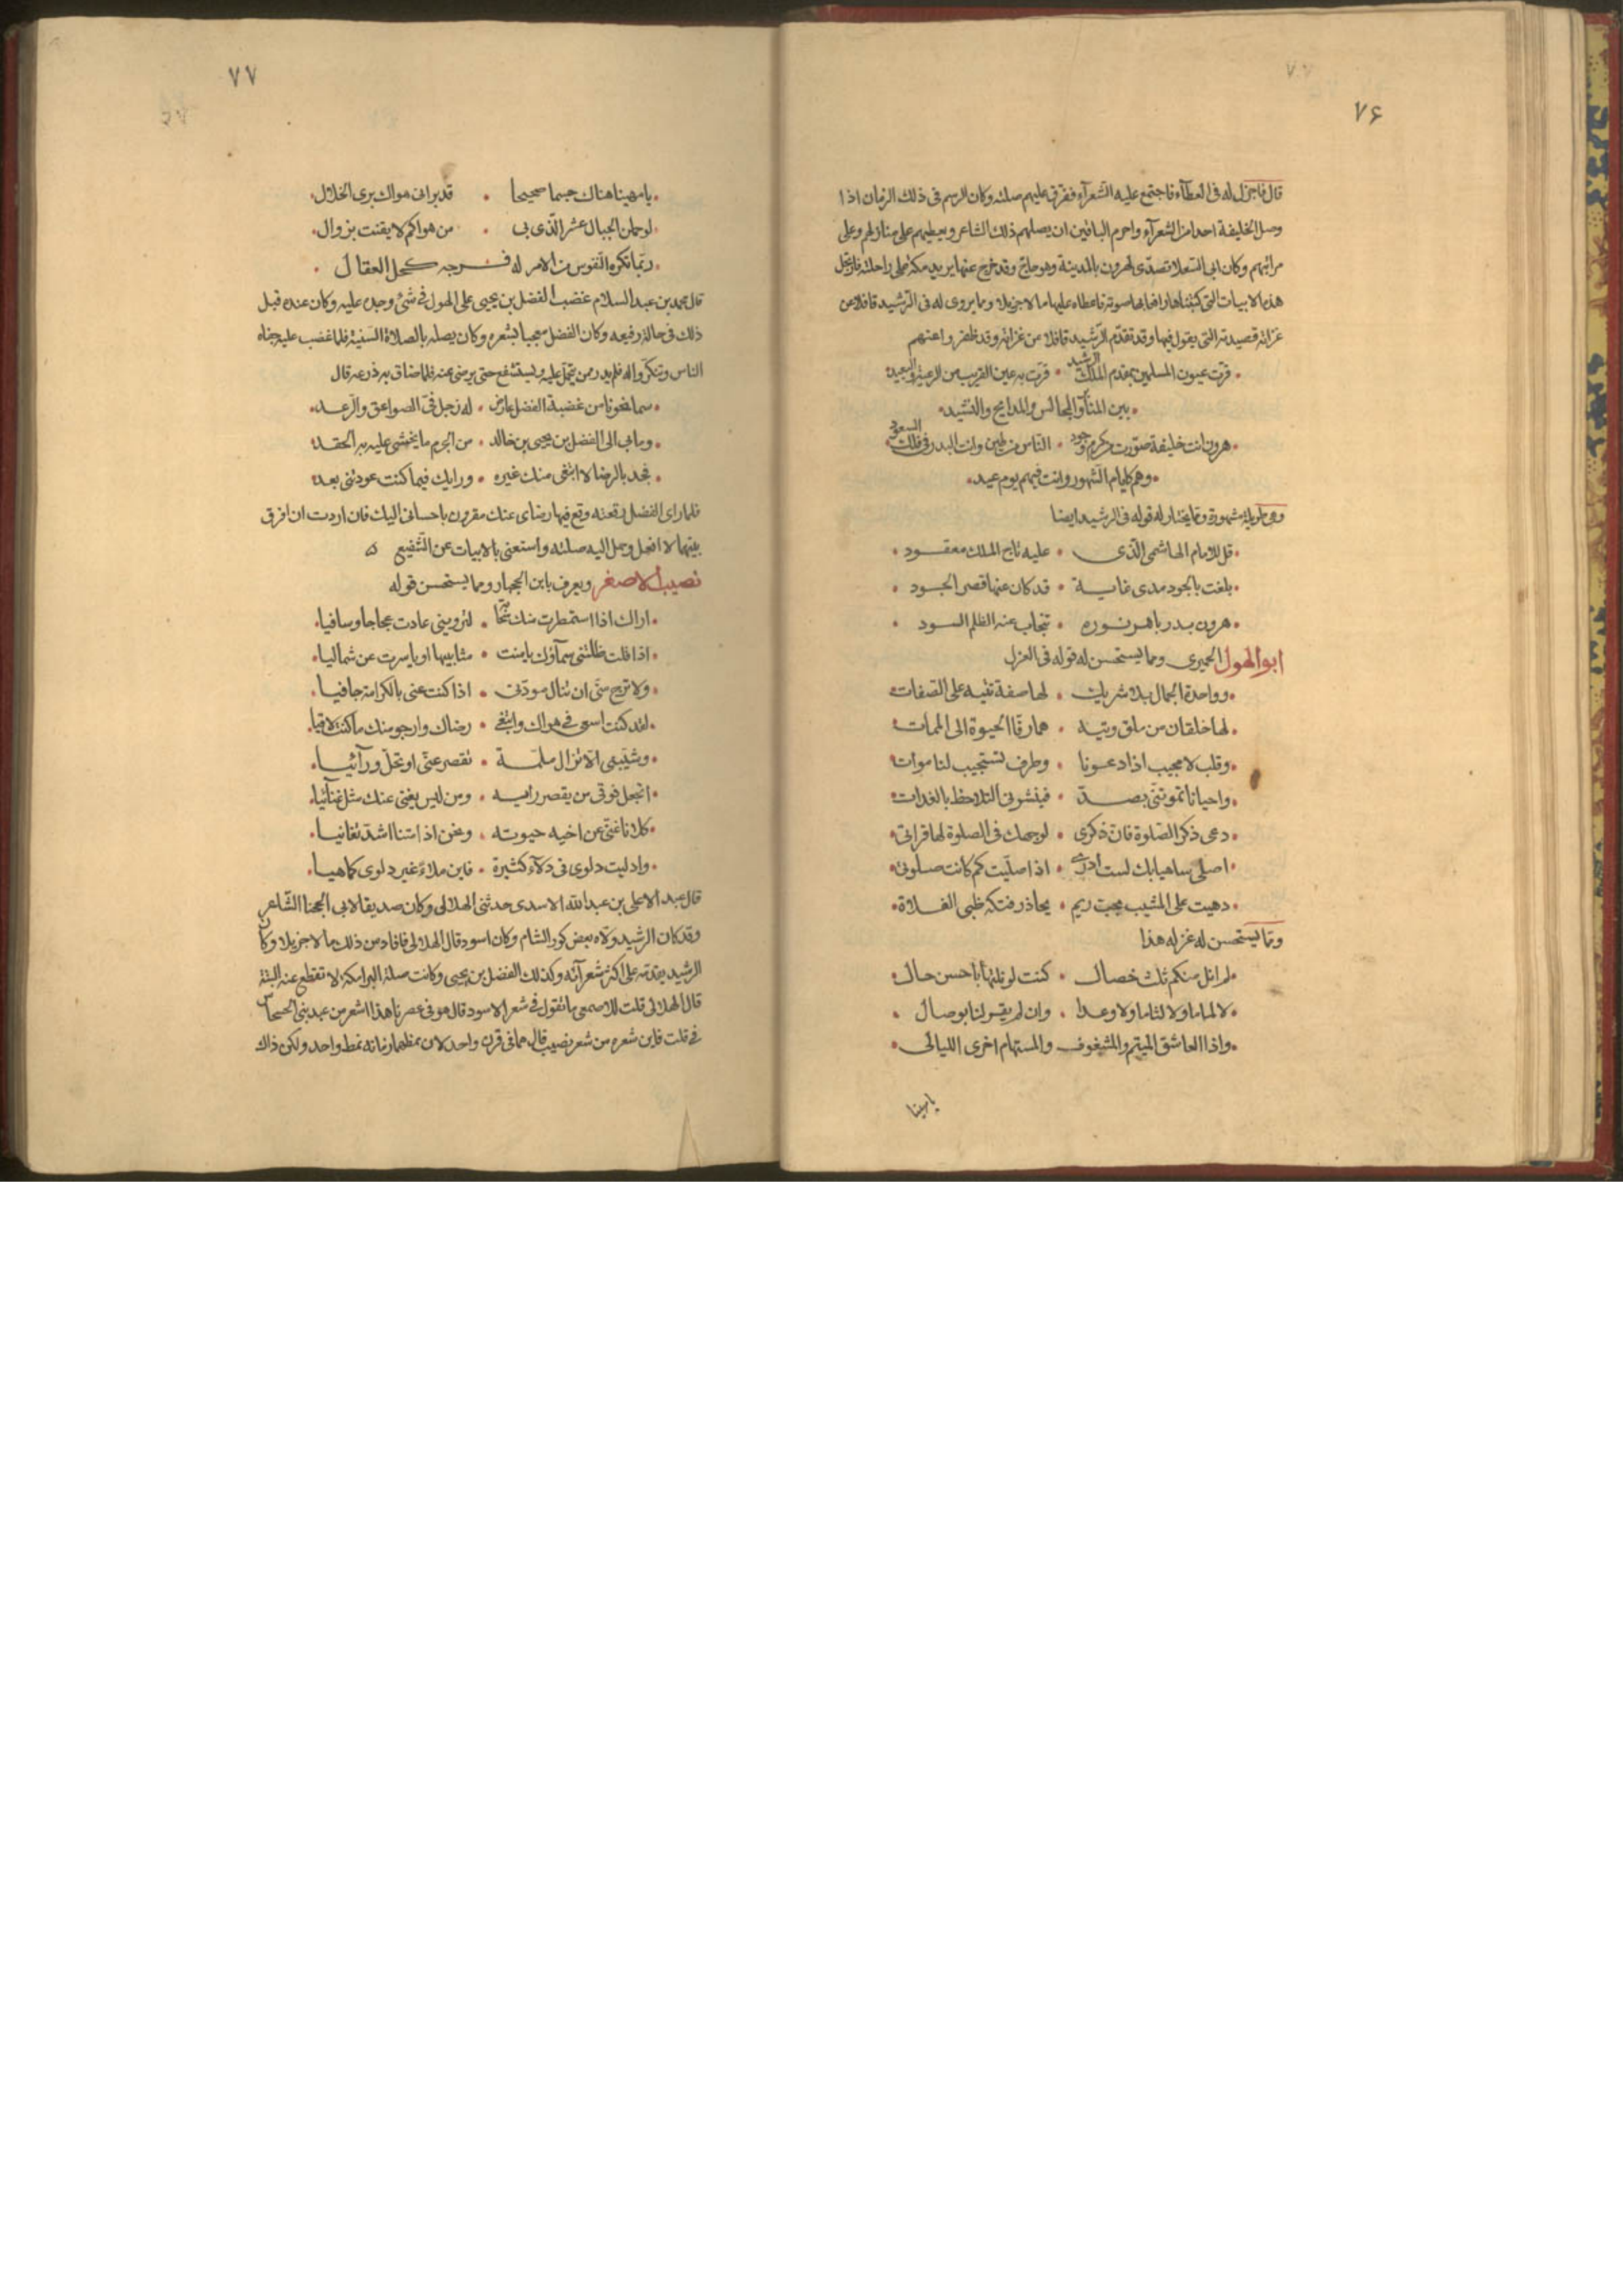 ٧٦
قال فاجزل له فى العطآء فاجتمع عليه الشعرآء ففرق عليهم صلته وكان الرسم فى ذلك الزمان اذا
وصل الخليفة احدا من الشعرآء واحرم الباقين ان يصلهم ذلك الشاعر ويعطيهم على منازلهم وعلى
مراتبهم وكان ابى السعلا تصدّى لهرون بالمدينة وهو حاج وقد خرج عنها يريد مكة على راحلته فارتجل
هذه الابيات التى كتبناها رافعا بها صوته فاعطاه عليها مالا جزيلا ومما يروى له فى الرشيد قافلا عن
غزاته قصيدته التى يقول فيها وقد تقدّم الرّشيد قافلا من غزاته وقد ظفر واعنهم
قرت عيون المسلمين بمقدم الملك الرشيد • قرت به عين القريب من الرعية والبعيد
بين المنآئر والمجالس والمدايح والنشيد
هرون انت خليفة صوّرت من كرم وجود • النّاس من طين وانت البدر فى فلك السعود
وهم كايام الشهور وانت فيهم يوم عيد
وهى طويلة مشهورة ومما يختار له قوله فى الرشيد ايضا
قل للامام الهاشمى الّذى • عليه تاج الملك معقود
بلغت بالجود مدى غاية • قد كان عنها قصر الجود
هرون بدر باهر نوره • تنجاب عنه الظلم السود
ابو الهول الحميرى ومما يستحسن له قوله فى الغزل
وواحدة الجمال بلا شريك • لها صفة تتيه على الصّفات
لها خلقان من ملق وتيه • هما رقّا الحيوة الى الممات
وقلب لا مجيب اذا دعونا • وطرف تستجيب لنا موات
واحيانا تموتنى بصدّ • فينشرنى التلاحظ بالغدات
دعى ذكر الصّلوة فان ذكرى • لوجهك فى الصلوة لها قراتى
اصلى ساهيا بك لست ادرى • اذا صلّيت كم كانت صلوتى
دهيت على المشيب بحب ريم • يحاذر فتكه ظبى الفلاة
وممّا يستحسن له غزله هذا
لم انل منكم تلك خصال • كنت لو نلتها باحسن حال
لا لماما ولا لثاما ولا وعدا • وان لم يقسر لنا بوصال
واذا العاشق المتيم والمشغوف والمستهام اخرى الليالى
يامهينا
٧٧
يا مهينا هناك جسما صحيحا • قد برانى هواك برى الخلال
لو حملن الجبال عشر الّذى بى • من هواكم لايقنت بزوال
ربّما تكره النّفوس من الامر له فرجه كحل العقال
قال محمد بن عبد السلام غضب الفضل بن يحيى على الهول فى شئ وجده عليه وكان عنده قبل
ذلك فى حالة رفيعه وكان الفضل معجبا بشعره وكان يصله بالصلاة السّنية فلما غضب عليه جفاه
الناس وتنكّروا له فلم يدر من يتحمّل عليه ويستشفع حتى يرضى عنه فلما ضاق به ذرعه قال
سما نحونا من غضبة الفضل عارض • له زجل فيه الصواعق والرّعد
ومابى الى الفضل بن يحيى بن خالد • من الجرم ما يخشى عليه به الحقد
فجد بالرضا لا ابتغى منك غيره • ورايك فيما كنت عودتنى بعد
فلما راى الفضل رقعته وقع فيها رضاى عنك مقرون باحسانى اليك فان اردت ان افرق
بينهما لا افعل وحمل اليه صلته واستغنى بالابيات عن الشّفيع
نصيب الاصغر ويعرف بابن الحجنا ومما يستحسن قوله
اراك اذا استمطرت منك سحّا • لتروينى عادت عجاجا وسافيا
اذا قلت ظلّتنى سمآؤك يامنت • مثابيها او ياسرت عن شماليا
ولا ترج منّى ان تنال مودّتى • اذا كنت عنى بالكرامة جافيا
لقد كنت اسعى فى هواك وابتغى • رضاك وارجو منك ما كنت لاقيا
وشيّبنى الّا تزال ملمّة • تقصر عنّى او تحلّ ورآئيا
اتجعل فوقى من يقصر رايه • ومن ليس يغنى عنك مثل غنآئيا
كلانا غنىّ عن اخيه حيوته • ونحن اذا متنا اشدّ تغانيا
وادليت دلوى فى دلآء كثيرة • فابن ملآء غير دلوى كما هيا
قال عبد الاعلى بن عبد الله الاسدى حدثنى الهلالى وكان صديقا لابى الحجنا الشّاعر
وقد كان الرشيد ولاه بعض كور الشام وكان اسود قال الهلالى فافاد من ذلك مالا جزيلا وكان
الرشيد يقدّمه على اكثر شعرآئه وكذلك الفضل بن يحيى وكانت صلة البرامكة لا تقطع عنه البتة
قال الهلالى قلت للاصمعى ما تقول فى شعر الاسود قال هو فى عصرنا هذا اشعر من عبد بنى الحسحاس
فى قلت فاين شعره من شعر نصيب قال هما فى قرن واحد لان نمطهما زمانه نمط واحد ولكن ذاك